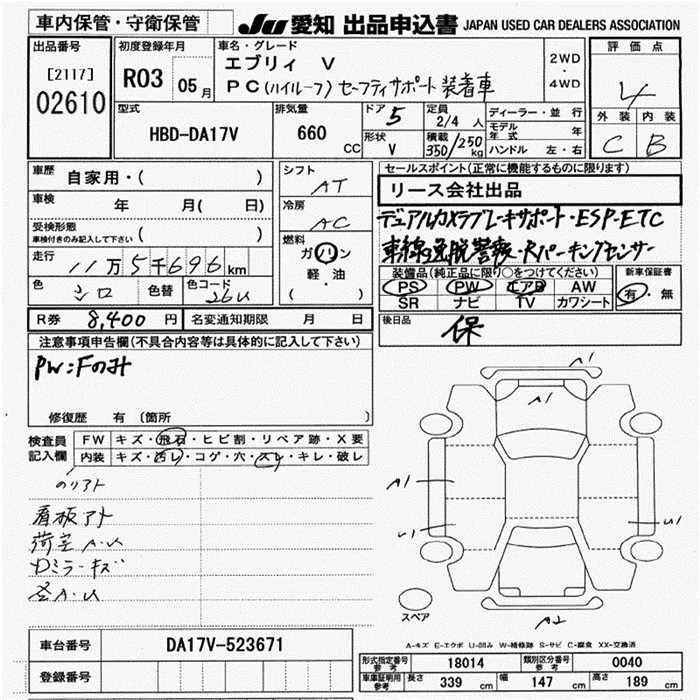 車内保管・守衛保管
JU 愛知 出品申込書 JAPAN USED CAR DEALERS ASSOCIATION
出品番号
[2117]
02610
初度登録年月
R03 05月
車名・グレード
エブリィ V
PC(ハイルーフ) セーフティサポート装着車
2WD
・
4WD
評価点
4
外装 内装
C B
型式
HBD-DA17V
排気量
660 CC
ドア 5
形状 V
定員 2/4 人
積載 350/250 kg
ディーラー・並行
モデル年式 年
ハンドル 左・右
車歴 自家用・( )
車検 年 月( 日)
受検形態
車検付きのみ記入して下さい ( )
走行 11万5千696km
色 シロ 色替 色コード 26U
シフト AT
冷房 AC
燃料
ガソリン
軽・油
( )
セールスポイント(正常に機能するものに限り)
リース会社出品
デュアルカメラブレーキサポート・ESP・ETC
車線逸脱警報・Rパーキングセンサー
装備品(純正品に限り○をつけてください)
PS PW エアB AW
SR ナビ TV カワシート
新車保証書
有・無
R券 8,400 円 名変通知期限 月 日
後日品 保
注意事項申告欄(不具合内容等は具体的に記入して下さい)
PW:Fのみ
修復歴 有〔箇所 〕
検査員記入欄
FW キズ・飛石・ヒビ割・リペア跡・X要
内装 キズ・汚レ・コゲ・穴・スレ・キレ・破レ
のリアト
看板アト
荷室A.U
Dミラーキズ
全A.U
A1
A1
A1
U1
U1
A2
スペア
A-キズ E-エクボ U-凹み W-補修跡 S-サビ C-腐食 XX-交換済
車台番号 DA17V-523671
登録番号
形式指定番号 参考 18014 類別区分番号 参考 0040
車庫証明用 参考 長さ 339 cm 幅 147 cm 高さ 189 cm